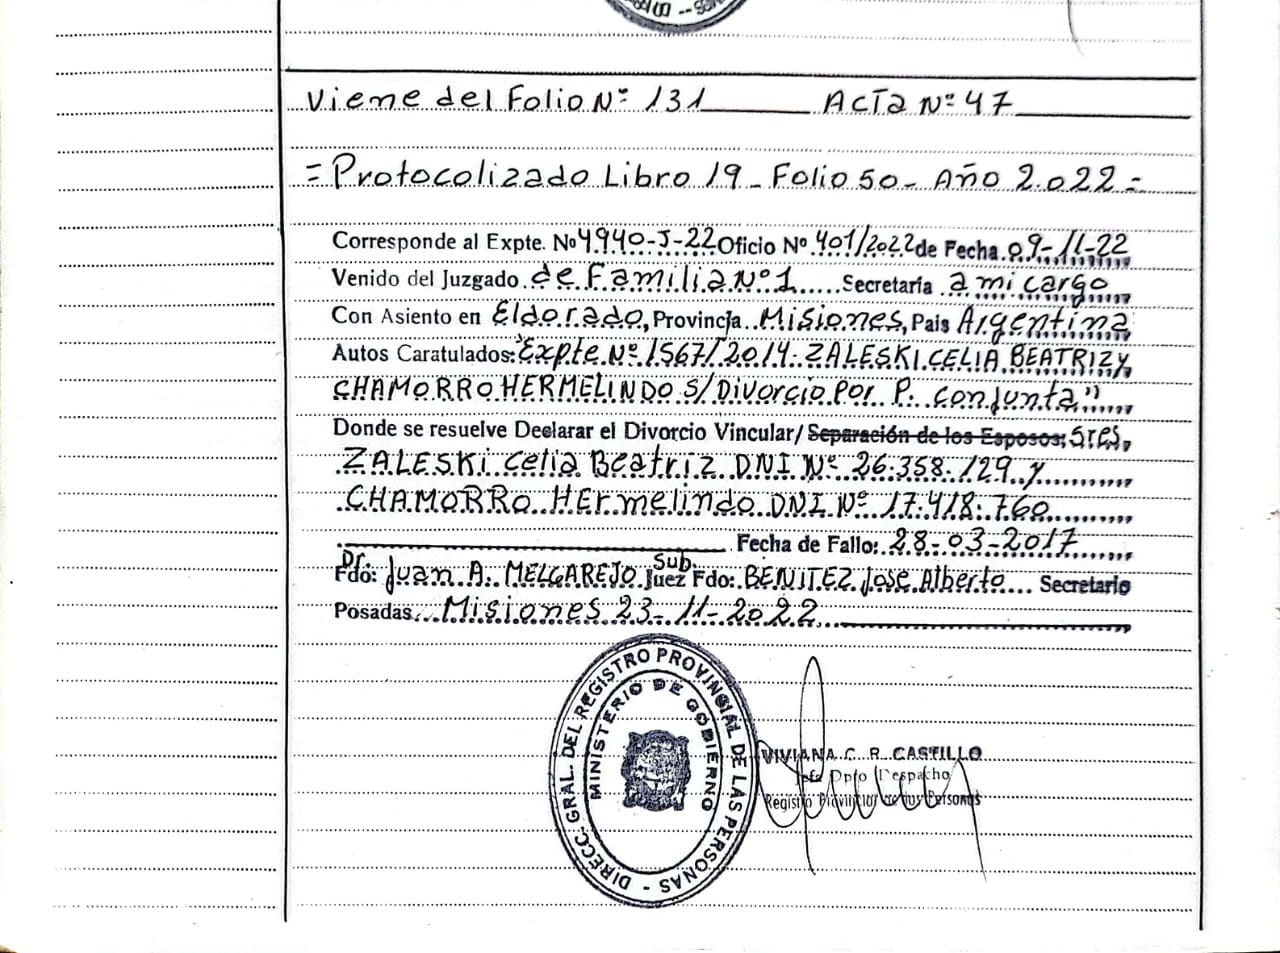 Viene del Folio Nº 131 Acta Nº 47
= Protocolizado Libro 19 - Folio 50 - Año 2.022 =
Corresponde al Expte. Nº 4940-J-22 Oficio Nº 401/2022 de Fecha 09-11-22
Venido del Juzgado de Familia Nº 1 Secretaria a mi cargo
Con Asiento en Eldorado, Provincia Misiones, Pais Argentina
Autos Caratulados: "Expte. Nº 1567/2014. ZALESKI CELIA BEATRIZ Y
CHAMORRO HERMELINDO S/ Divorcio Por P. conjunta"
Donde se resuelve Declarar el Divorcio Vincular/ Separación de los Esposos; Sres,
ZALESKI Celia Beatriz DNI Nº 26.358.129 y
CHAMORRO HErmelindo DNI Nº 17.418.760
Fecha de Fallo: 28-03-2017
Dr. Sub.
Fdo: Juan A. MELGAREJO Juez Fdo: BENITEZ Jose Alberto Secretario
Posadas, Misiones 23-11-2022
DIRECC. GRAL. DEL REGISTRO PROVINCIAL DE LAS PERSONAS -
MINISTERIO DE GOBIERNO
VIVIANA C. R. CASTILLO
Jefe Dpto Despacho
Registro Provincial de las Personas